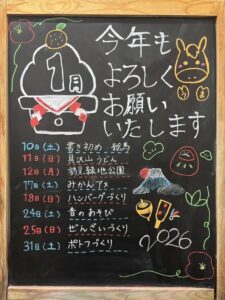 1月
今年も
よろしく
お願い
いたします
うま
10日(土) 書き初め・絵馬
11日(日) 具沢山うどん
12日(月) 鶴見緑地公園
17日(土) みかんアメ
18日(日) ハンバーグづくり
24日(土) 昔のあそび
25日(日) ぜんざいづくり
31日(土) ポトフづくり
2026